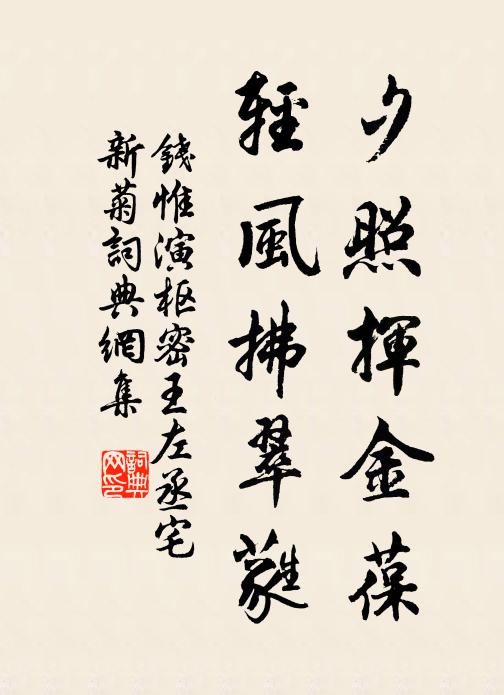 夕照揮金葆
輕風拂翠蕤
錢惟演枢密王左丞宅
新菊詞典網集
詞典网印